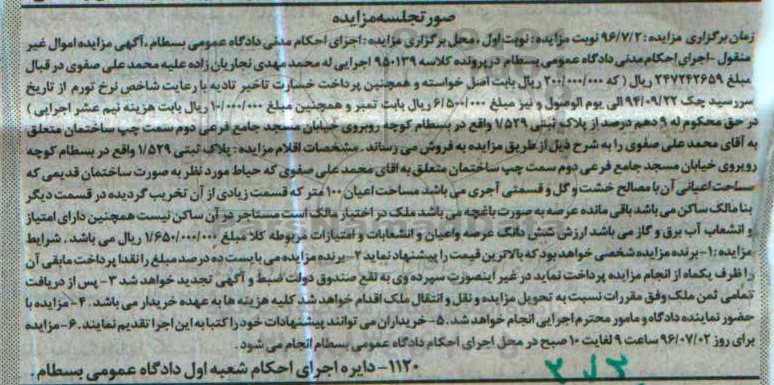 صورتجلسه مزایده
زمان برگزاری مزایده: ۹۶/۷/۲ نوبت مزایده: نوبت اول، محل برگزاری مزایده: اجرای احکام مدنی دادگاه عمومی بسطام. آگهی مزایده اموال غیر
منقول - اجرای احکام مدنی دادگاه عمومی بسطام در پرونده کلاسه ۹۵۰۱۳۹ اجرایی له محمد مهدی نجاریان زاده علیه محمد علی صفوی در قبال
مبلغ ۲۴۷۲۴۲۶۵۹ ریال (که ۲۰۰/۰۰۰/۰۰۰ ریال بابت اصل خواسته و همچنین پرداخت خسارت تاخیر تادیه با رعایت شاخص نرخ تورم از تاریخ
سررسید چک ۹۴/۰۹/۲۲ الی یوم الوصول و نیز مبلغ ۶/۵۰۰/۰۰۰ ریال بابت تمبر و همچنین مبلغ ۱۰/۰۰۰/۰۰۰ ریال بابت هزینه نیم عشر اجرایی)
در حق محکوم له ۹ دهم درصد از پلاک ثبتی ۱/۵۲۹ واقع در بسطام کوچه روبروی خیابان مسجد جامع فرعی دوم سمت چپ ساختمان متعلق
به آقای محمد علی صفوی را به شرح ذیل از طریق مزایده به فروش می رساند. مشخصات اقلام مزایده: پلاک ثبتی ۱/۵۲۹ واقع در بسطام کوچه
روبروی خیابان مسجد جامع فرعی دوم سمت چپ ساختمان متعلق به آقای محمد علی صفوی که حیاط مورد نظر به صورت ساختمان قدیمی که
مساحت اعیانی آن با مصالح خشت و گل و قسمتی آجری می باشد مساحت اعیان ۱۰۰ متر که قسمت زیادی از آن تخریب گردیده در قسمت دیگر
بنا مالک ساکن می باشد باقی مانده عرصه به صورت باغچه می باشد ملک در اختیار مالک است مستاجر در آن ساکن نیست همچنین دارای امتیاز
و انشعاب آب برق و گاز می باشد ارزش شش دانگ عرصه واعیان و انشعابات و امتیازات مربوطه کلا مبلغ ۱/۶۵۰/۰۰۰/۰۰۰ ریال می باشد. شرایط
مزایده: ۱- برنده مزایده شخصی خواهد بود که بالاترین قیمت را پیشنهاد نماید ۲- برنده مزایده می بایست ده درصد مبلغ را نقدا پرداخت مابقی آن
را ظرف یکماه از انجام مزایده پرداخت نماید در غیر اینصورت سپرده وی به نفع صندوق دولت ضبط و آگهی تجدید خواهد شد ۳- پس از دریافت
تمامی ثمن ملک وفق مقررات نسبت به تحویل مزایده و نقل و انتقال ملک اقدام خواهد شد کلیه هزینه ها به عهده خریدار می باشد. ۴- مزایده با
حضور نماینده دادگاه و مامور محترم اجرایی انجام خواهد شد. ۵- خریداران می توانند پیشنهادات خود را کتبا به این اجرا تقدیم نمایند. ۶- مزایده
برای روز ۹۶/۰۷/۰۲ ساعت ۹ لغایت ۱۰ صبح در محل اجرای احکام دادگاه عمومی بسطام انجام می شود.
۱۱۲۰- دایره اجرای احکام شعبه اول دادگاه عمومی بسطام.